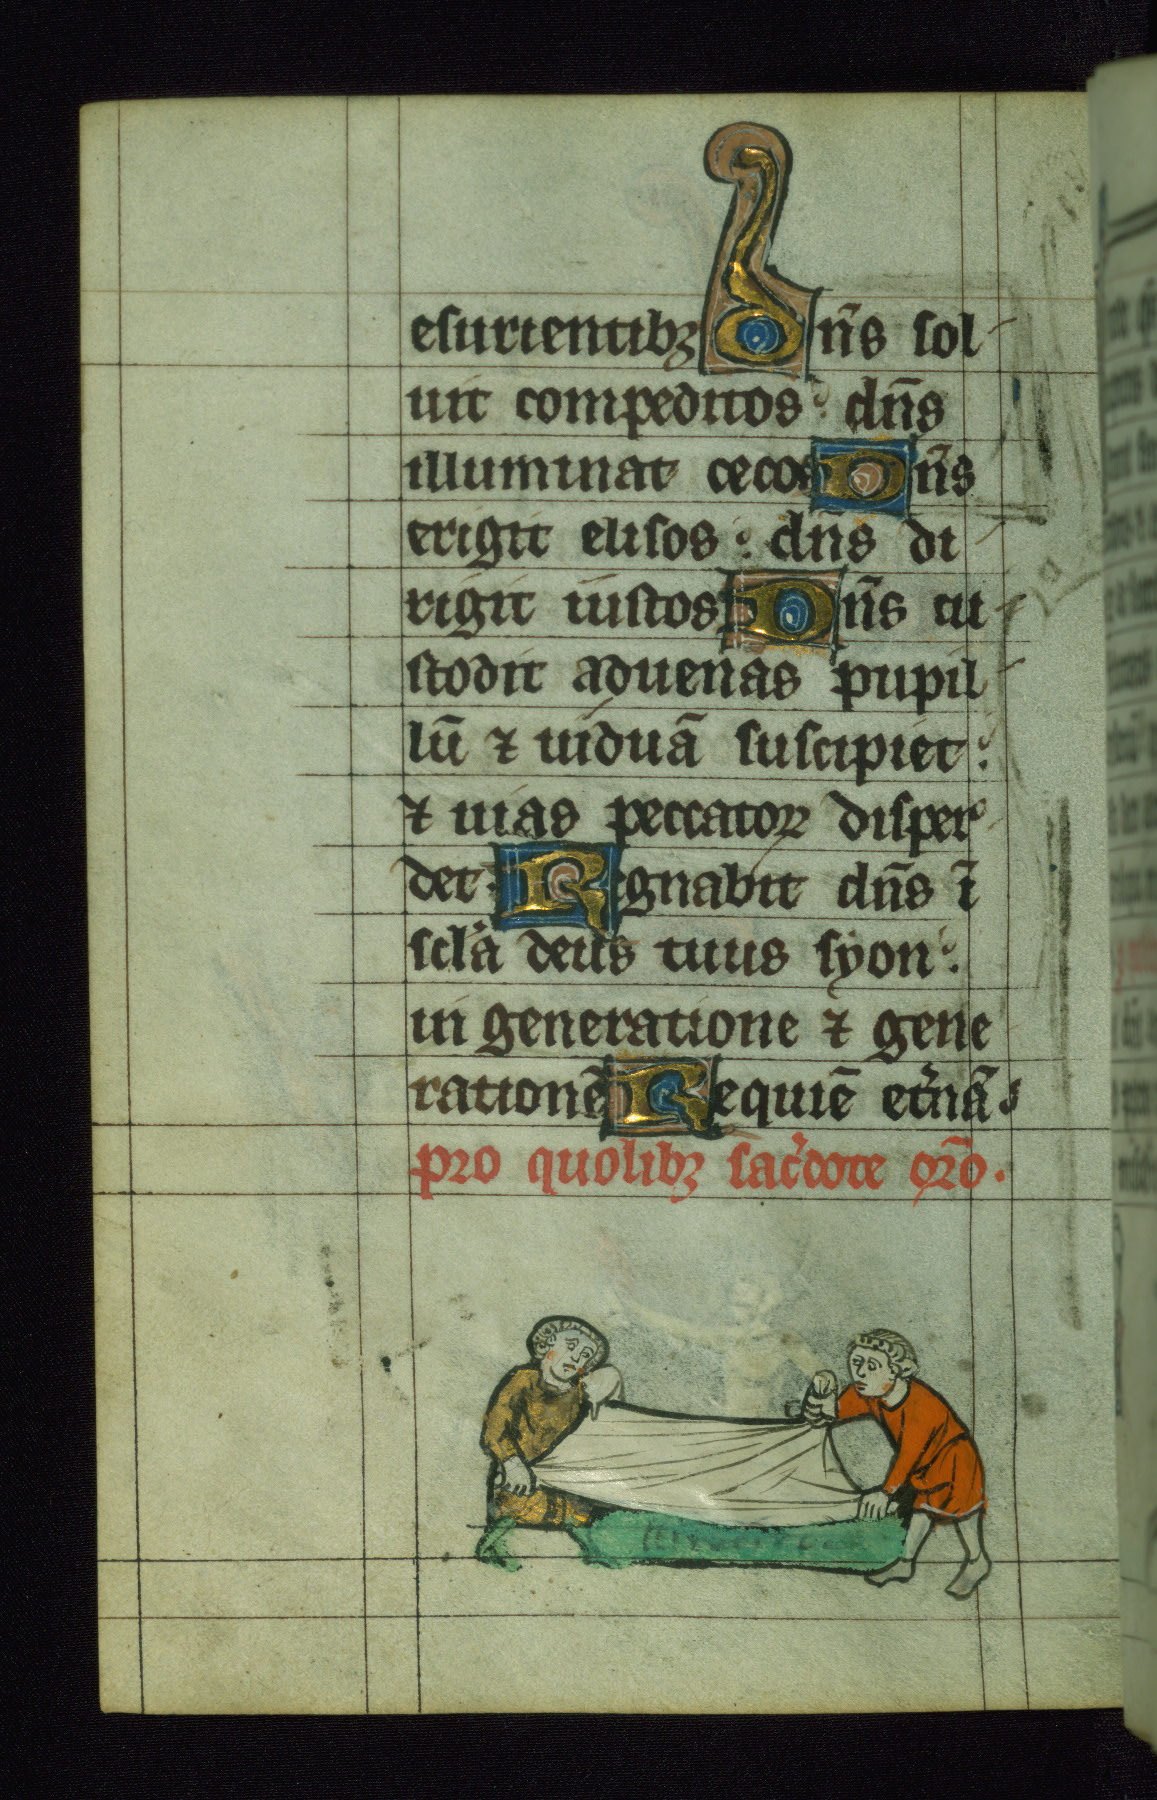 esurientibꝫ Dn̄s sol
uit compeditos: dn̄s
illuminat cecos Dn̄s
erigit elisos: dn̄s di
rigit iustos Dn̄s cu
stodit aduenas pupil
lū ⁊ uiduā suscipiet:
⁊ uias peccatoꝝ disper
det Regnabit dn̄s ī
scl̓a deus tuus syon:
in generatione ⁊ gene
rationē Requiē et̓nā
pro quolibꝫ sac̓dote or̄o.